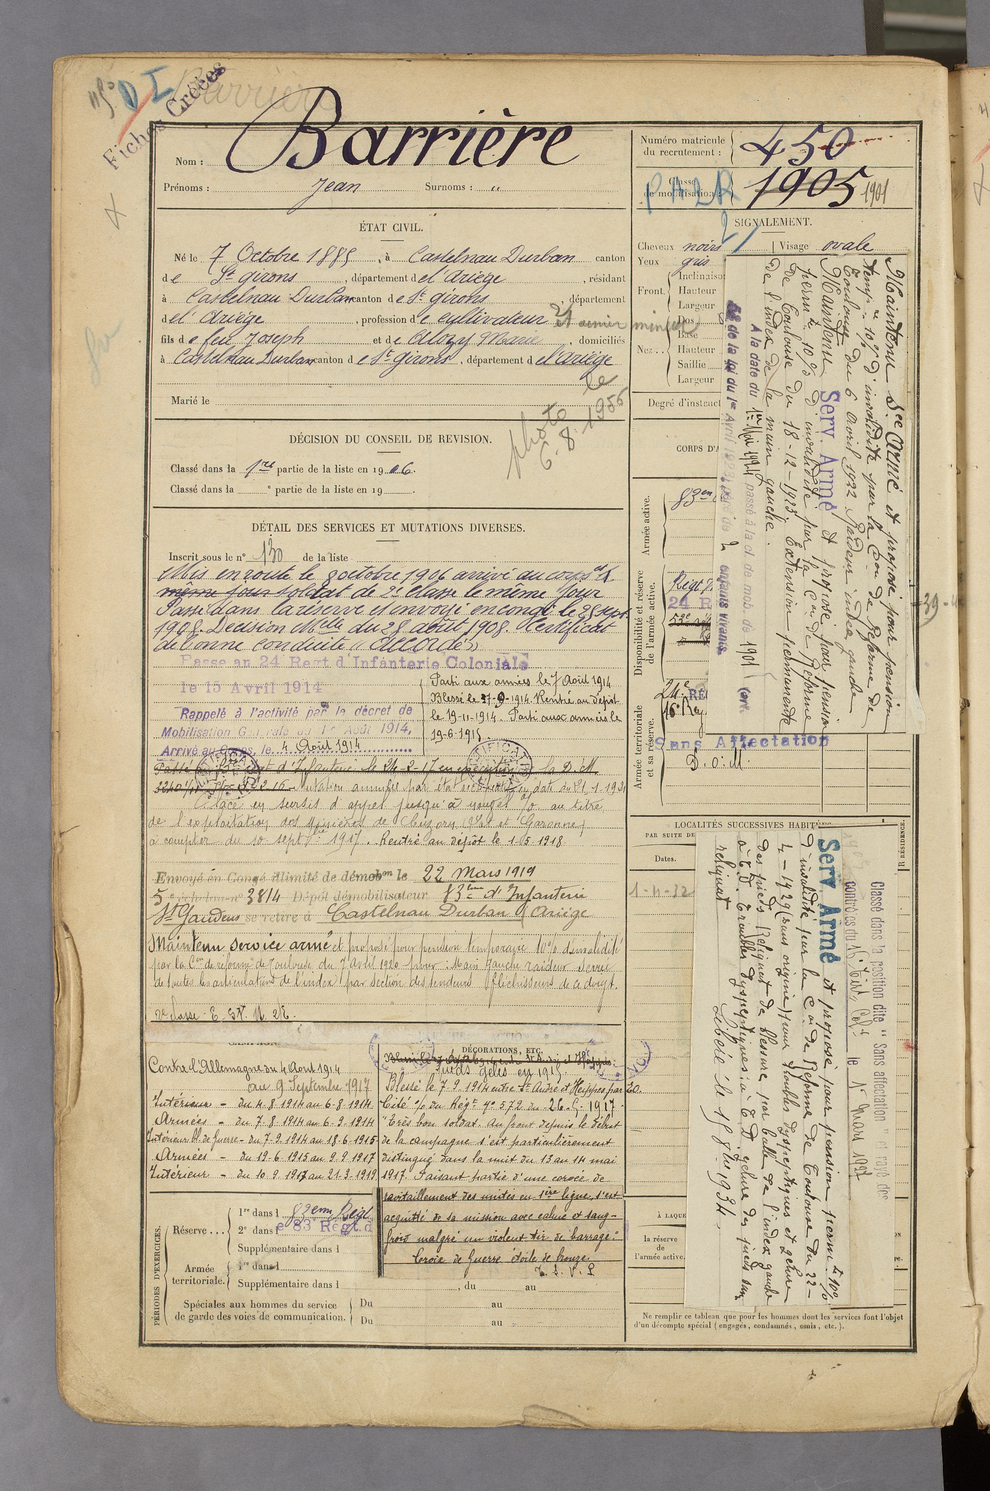 Fiches Créées
Barrière
Nom : Barrière
Prénoms : Jean Surnoms : "
Numéro matricule du recrutement : 450
Classe de mobilisation : 1905 1901
ÉTAT CIVIL.
Né le 7 Octobre 1885, à Castelnau Durban canton
de St girons, département de l'Ariège, résidant
à Castelnau Durban canton de St girons, département
de l'Ariège, profession de le cultivateur
fils de feu Joseph et de Alozy Marie, domiciliés
à Castelnau Durban canton de St girons, département de l'Ariège
Marié le
photo le
6.8.1956
DÉCISION DU CONSEIL DE REVISION.
Classé dans la 1re partie de la liste en 1906.
Classé dans la " partie de la liste en 19
DÉTAIL DES SERVICES ET MUTATIONS DIVERSES.
Inscrit sous le n° 130 de la liste
Mis en route le 8 octobre 1906 arrivé au corps et
même jour soldat de 2e classe le même jour
Passé dans la réserve et envoyé en congé le 25 sept.
1908. Décision Mlle du 28 août 1908. Certificat
de bonne conduite "Accordé"
Passé au 24 Régt d'Infanterie Coloniale
le 15 Avril 1914
Rappelé à l'activité par le décret de
Mobilisation Générale du 1er Août 1914,
Arrivé au Corps, le 4 Août 1914
Parti aux armées le 7 Août 1914
Blessé le 7-9-1914. Rentré au dépôt
le 19-11-1914. Parti aux armées le
19-6-1915.
Placé en sursis d'appel jusqu'à nouvel o/o au titre
à compter du 10 septbre 1917. Rentré au dépôt le 1.5.1918
Envoyé en Congé illimité de démobon le 22 Mars 1919
5e échelon n° 3814 Dépôt démobilisateur 83ème d'Infanterie
St Gaudens se retire à Castelnau Durban Ariège
Maintenu service armé et proposé pour pension temporaire 10% d'invalidité
par la Con de réforme de Toulouse du 7 avril 1920 pour : Main gauche raideur serrée
de toutes les articulations de l'index par section des tendons fléchisseurs de ce doigt.
Contre l'Allemagne du 4 Août 1914
au 9 Septembre 1917
Intérieur - du 4-8-1914 au 6-8-1914
Armées - du 7-8-1914 au 6-9-1914
Intérieur bl. de Guerre - du 7-9-1914 au 18-6-1915
Armées - du 19-6-1915 au 9-9-1917
Intérieur - du 10-9-1917 au 21-3-1919
DÉCORATIONS, ETC.
Pieds gelés en 1915.
Blessé le 7.9.1914 entre St André et Heippes par éo.
Cité % du Régt n° 572 du 26.5.1917.
"Très bon soldat. Au front depuis le début
de la campagne s'est particulièrement
distingué dans la nuit du 13 au 14 mai
1917. Faisant partie d'une corvée de
ravitaillement des unités en 1ère ligne, s'est
acquitté de sa mission avec calme et sang-
froid malgré un violent tir de barrage."
Croix de Guerre étoile de bronze
PÉRIODES D'EXERCICES.
Réserve
1re dans l 83em Régt
2e dans l e 83 Régt d
Supplémentaire dans l
Armée territoriale.
1re dans l
Supplémentaire dans l , du au
Spéciales aux hommes du service
de garde des voies de communication.
Du au
Du au
SIGNALEMENT.
Cheveux noirs Visage ovale
Yeux gris
Front.
Inclinaison
Hauteur
Largeur
Nez
Dos
Base
Hauteur
Saillie
Largeur
Degré d'instruct
CORPS D'A
Armée active. 83em
Disponibilité et réserve de l'armée active.
24 R
Armée territoriale et sa réserve.
24e RÉ
16e Rég
Sans Affectation
P. O. M.
Maintenu Sce Armé et proposé pour pension
tempre 10% d'invalidité par la Con de Réforme de
Toulouse du 6 avril 1922 Raideur index gauche
Maintenu Serv. Armé et proposé pour pension
perm à 10% d'invalidité par la Con de Réforme
de Toulouse du 18-12-1923, Extension permanente
de l'index de la main gauche.
A la date du 1er Mai 1924 passé à la cl de mob. de 1901 (art.
58 de la loi du 1er Avril 1923) père de 2 enfants vivants
LOCALITÉS SUCCESSIVES HABIT
PAR SUITE DE
Dates.
1-4-32
Classé dans la position dite "Sans affectation" et rayé des
contrôles du 16e Tirs Colx le 1er Mars 1927
Serv. Armé et proposé pour pension perm. à 10%
d'invalidité par la Con de Réforme de Toulouse du 22-
4-1929 (sans origine) pour troubles dyspeptiques et gelure
des pieds Reliquat de blessure par balle de l'index gauche
à E.D. Troubles dyspeptiques : à E.D. gelure des pieds sans
reliquat Libéré le 15 8bre 1934.
À LAQUE
la réserve de l'armée active.
Ne remplir ce tableau que pour les hommes dont les services font l'objet
d'un décompte spécial (engagés, condamnés, omis, etc.).